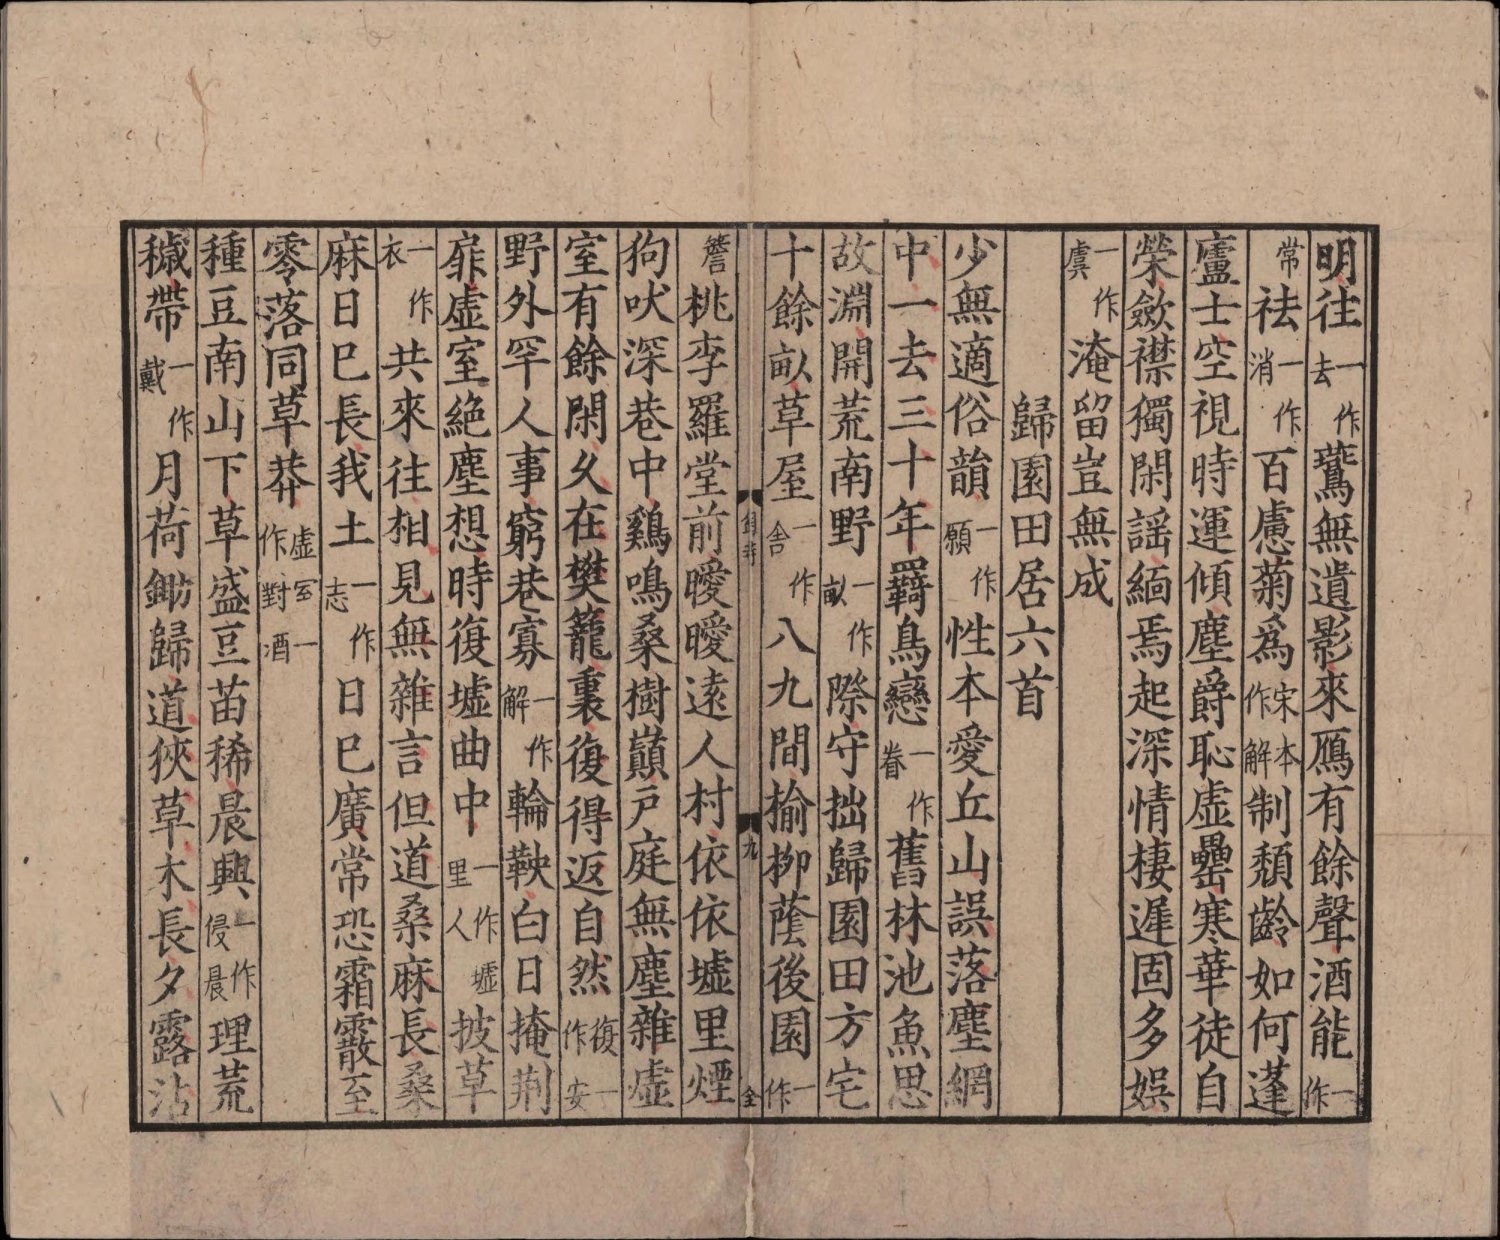 明徃一作去鷰無遺影來鴈有餘聲酒能一作
常祛一作消百慮菊爲宋本作解制頽齡如何蓬
廬士空視時運傾塵爵恥虚罍寒華徒自
榮斂襟獨閑謡緬焉起深情棲遲固多娯
一作虞淹留豈無成
歸園田居六首
少無適俗韻一作願性本愛丘山誤落塵網
中一去三十年羇鳥戀一作眷舊林池魚思
故淵開荒南野一作畝際守拙歸園田方宅
十餘畝草屋一作舍八九間榆柳蔭後園一作
九
簷桃李羅堂前曖曖遠人村依依墟里煙
狗吠深巷中鷄鳴桑樹巔戶庭無塵雜虛
室有餘閑久在樊籠裏復得返自然復一作安
野外罕人事窮巷寡一作解輪鞅白日掩荆
扉虚室絶塵想時復墟曲中一作里人墟披草
一作衣共來往相見無雜言但道桑麻長桑
麻日已長我土一作志日已廣常恐霜霰至
零落同草莽虛室一作對酒
種豆南山下草盛豆苗稀晨興一作侵晨理荒
穢帶一作戴月荷鋤歸道狹草木長夕露沾